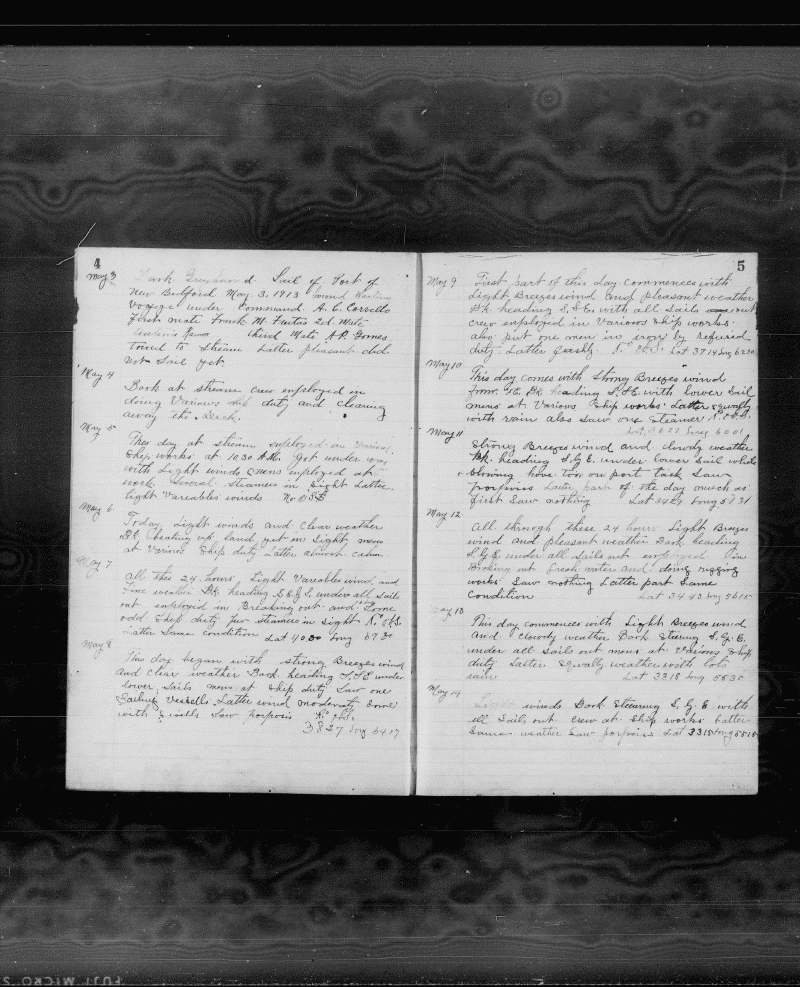 4
May 3 Bark Greyhound. Sail of Port of
New Bedford May 3, 1913 bound
Voyage under Command A. C. Corvello
First mate Frank M. Freitas 2d. Mate
third Mate A. P. Gomes
towed to Stream Latter pleasant did
Not Sail yet
May 4
Bark at stream crew employed in
doing Various ship duty and clearing
away the Deck.
May 5
This day at stream employed in Various
Ship works at 10.30 A.M. Got under way
with Light winds mens employed at
work Several steamers in Sight Latter
light Variables winds No OBS
May 6
Today Light winds and clear weather
Bk beating up land yet in Sight mens
at Various Ship duty Latter almost calm
May 7
All this 24 hours Light Variables wind and
Fine weather Bk. heading under all Sails
out employed in Breaking out and Some
odd Ship duty few steamers in Sight
Latter Same condition Lat 40.30 Long 69 30
May 8
This day began with strong Breezes wind
and clear weather Bark heading under
lower Sails mens at Ship duty Saw one
Sailing Vessells Latter wind moderate Some
with Saw porporis
38 27 Long 64 27
5
May 9 First part of this day commences with
Light Breezes wind and pleasant weather
Bk. heading S.E. with all Sails out
crew employed in Various Ship works
also put one men in irons by refused
duty. Latter Lat 37 14 Long 62 30
May 10
This day comes with Strong Breezes wind
from Bk heading with lower Sail
mens at Various Ship works. Latter squally
with rain also Saw one Steamer
Long 60 01
May 11
Strong Breezes wind and clowdy weather
Bk. heading under lower Sail while
blowing hove too on port tack Saw
porporis Latter part of the day much as
first Saw nothing Lat Long 58 31
May 12
All through these 24 hours Light Breezes
wind and pleasant weather Bark heading
under all Sails out employed in
Breaking out fresh water and doing rigging
works Saw nothing Latter part Same
Condition Lat 34 43 Long 56 15
May 13
This day commences with Light Breezes wind
And Clowdy weather Bark Steering
under all Sails out mens at Various Ship
duty Latter Squally weather with lots
rain Lat 33 18 Long 55 30
May 14
Light winds Bark Steering with
all Sails out crew at Ship works Latter
Same weather Saw porpoises Lat 33 15 Long 55 15
FUJI MICRO